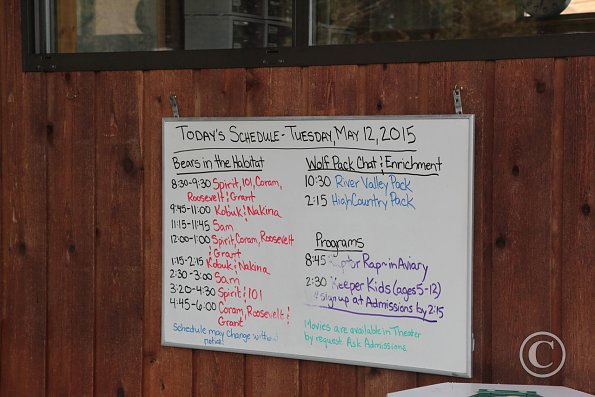 TODAY'S SCHEDULE - TUESDAY, MAY 12, 2015
BEARS IN THE HABITAT
8:30-9:30 Spirit, 101, Coram,
Roosevelt & Grant
9:45-11:00 Kobuk & Nakina
11:15-11:45 Sam
12:00-1:00 Spirit, Coram, Roosevelt
& Grant
1:15-2:15 Kobuk & Nakina
2:30-3:00 Sam
3:20-4:30 Spirit & 101
4:45-6:00 Coram, Roosevelt &
Grant
Schedule may change without
notice!
WOLF PACK CHAT & ENRICHMENT
10:30 River Valley Pack
2:15 High Country Pack
Programs
8:45 Raptor Rap in Aviary
2:30 Keeper Kids (ages 5-12)
sign up at Admissions by 2:15
Movies are available in Theater
by request. Ask Admissions
©